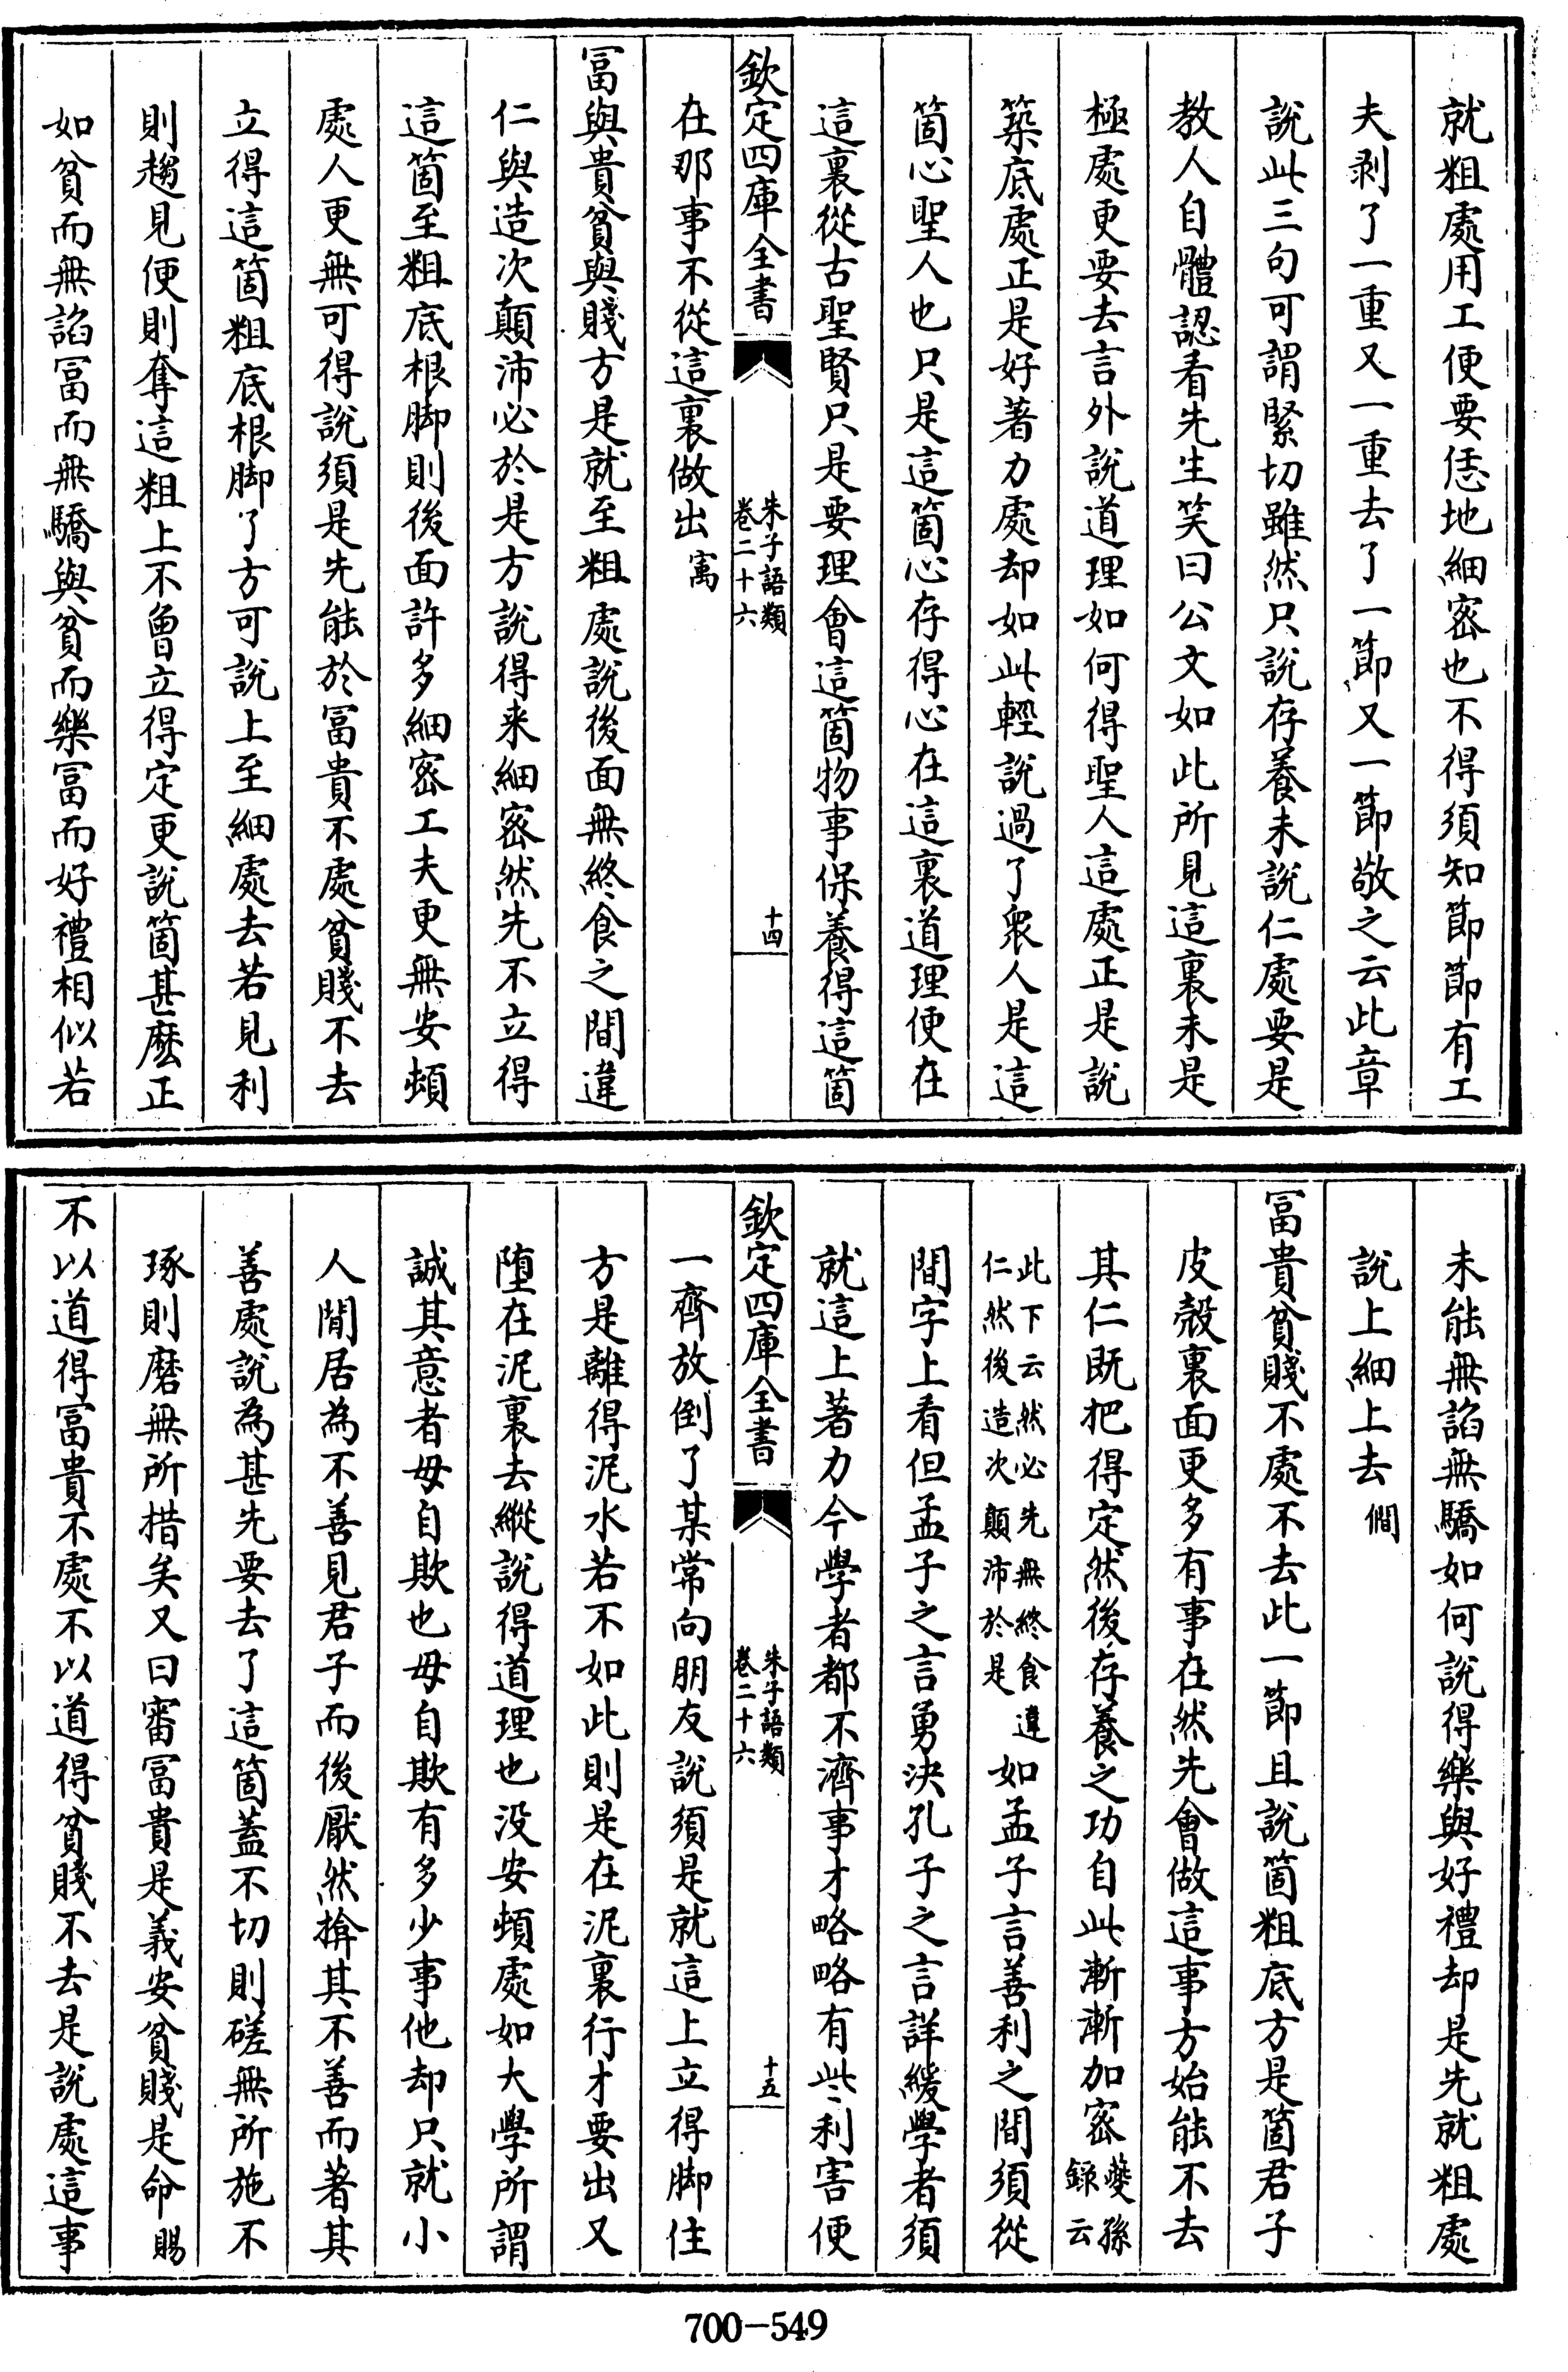 就粗處用工便要恁地細密也不得須知節節有工
夫剥了一重又一重去了一節又一節敬之云此章
說此三句可謂緊切雖然只說存養未說仁處要是
教人自體認看先生笑曰公文如此所見這裏未是
極處更要去言外說道理如何得聖人這處正是說
築底處正是好著力處却如此輕說過了衆人是這
箇心聖人也只是這箇心存得心在這裏道理便在
這裏從古聖賢只是要理會這箇物事保養得這箇
欽定四庫全書
朱子語類
卷二十六
十四
在那事不從這裏做出㝢
冨與貴貧與賤方是就至粗處說後面無終食之間違
仁與造次顛沛必於是方說得来細密然先不立得
這箇至粗底根脚則後面許多細密工夫更無安頓
處人更無可得說須是先能於冨貴不處貧賤不去
立得這箇粗底根脚了方可說上至細處去若見利
則趨見便則奪這粗上不曾立得定更說箇甚麽正
如貧而無諂冨而無驕與貧而樂冨而好禮相似若
未能無諂無驕如何說得樂與好禮却是先就粗處
說上細上去僩
冨貴貧賤不處不去此一節且說箇粗底方是箇君子
皮殼裏面更多有事在然先會做這事方始能不去
其仁既把得定然後存養之功自此漸漸加密夔孫
錄云
此下云然必先無終食違
仁然後造次顛沛於是如孟子言善利之間須從
間字上看但孟子之言勇決孔子之言詳緩學者須
就這上著力今學者都不濟事才略略有些利害便
欽定四庫全書
朱子語類
卷二十六
十五
一齊放倒了某常向朋友說須是就這上立得脚住
方是離得泥水若不如此則是在泥裏行才要出又
墮在泥裏去縱說得道理也没安頓處如大學所謂
誠其意者毋自欺也毋自欺有多少事他却只就小
人閒居為不善見君子而後厭然揜其不善而著其
善處說為甚先要去了這箇蓋不切則磋無所施不
琢則磨無所措矣又曰審冨貴是義安貧賤是命賜
不以道得冨貴不處不以道得貧賤不去是說處這事
700-549